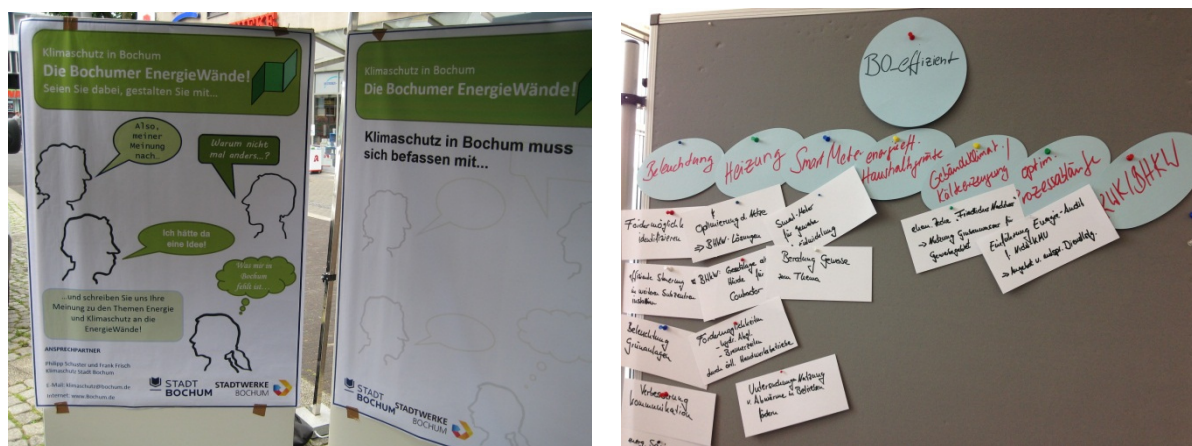 Klimaschutz in Bochum
Die Bochumer EnergieWände!
Seien Sie dabei, gestalten Sie mit...
Also,
meiner
Meinung
nach…
Warum nicht
mal anders…?
Ich hätte da
eine Idee!
Was mir in
Bochum
fehlt ist…
...und schreiben Sie uns Ihre
Meinung zu den Themen Energie
und Klimaschutz an die
EnergieWände!
ANSPRECHPARTNER
Philipp Schuster und Frank Frisch
Klimaschutz Stadt Bochum
E-Mail: klimaschutz@bochum.de
Internet: www.Bochum.de
STADT
BOCHUM
STADTWERKE
BOCHUM
Klimaschutz in Bochum
Die Bochumer EnergieWände!
Klimaschutz in Bochum muss
sich befassen mit...
STADT
BOCHUM
STADTWERKE
BOCHUM
BO_effizient
Beleuchtung
Heizung
Smart Meter
energieeff.
Haushaltsgeräte
Gebäudeklimat. /
Kälteerzeugung
optim.
Prozessabläufe
KWK/BHKW
Fördermögliche
identifizieren
Optimierung d. Netze
→ BHKW-Lösungen
Smart-Meter
für Gewerbe
effiziente Steuerung
in weiteren
installieren
BHKW:
Hürde für
Contractor
Beratung Gewerbe
zum Thema
Beleuchtung
Grünanlagen
Fördermöglichkeiten
Verbesserung
Kommunikation
Untersuchung Nutzung
v. Abwärme in Betrieben
fördern
→ Nutzung Grubenwasser für
Gewerbegebiet
Einführung Energie-Audit
f. KMU
→ Angebot v.